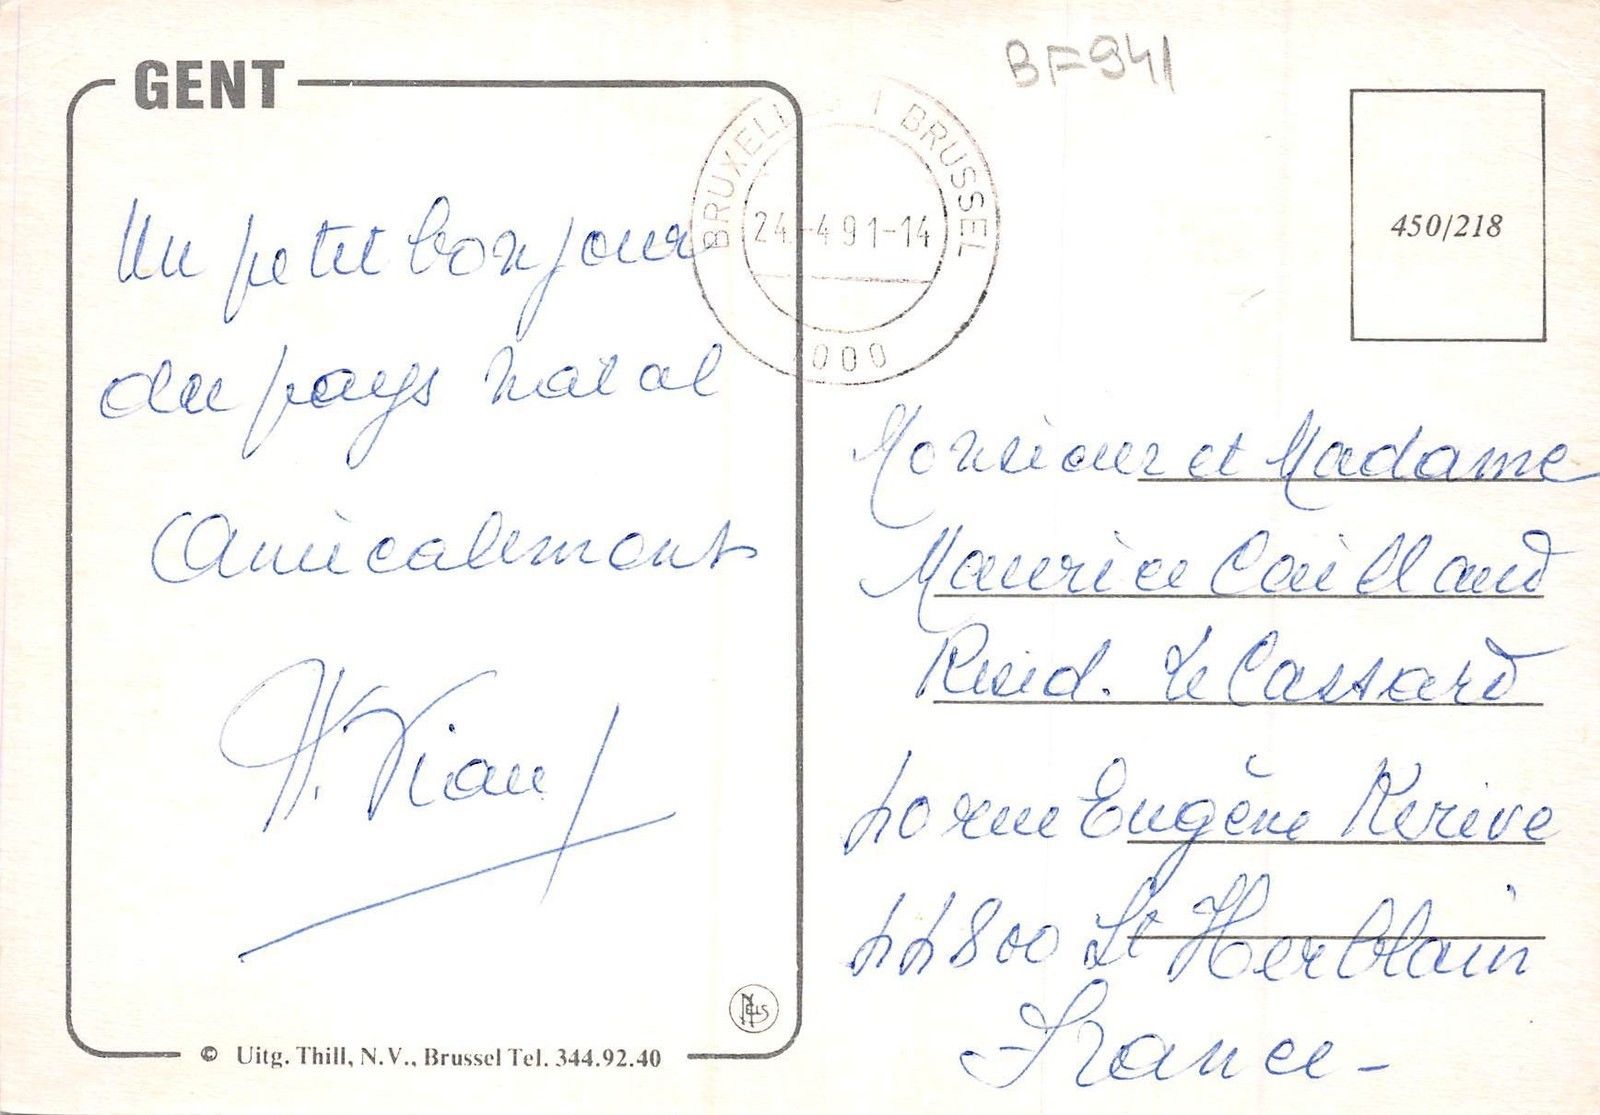 GENT
BF941
BRUXELL 1 BRUSSEL
24-491-14
1000
450/218
Un petit bonjour
du pays natal
Amicalement
H. Viau
Monsieur et Madame
Maurice Caillaud
Resid. Le Cassard
40 rue Eugène Kerive
44800 St Herblain
France -
NELS
© Uitg. Thill, N.V., Brussel Tel. 344.92.40